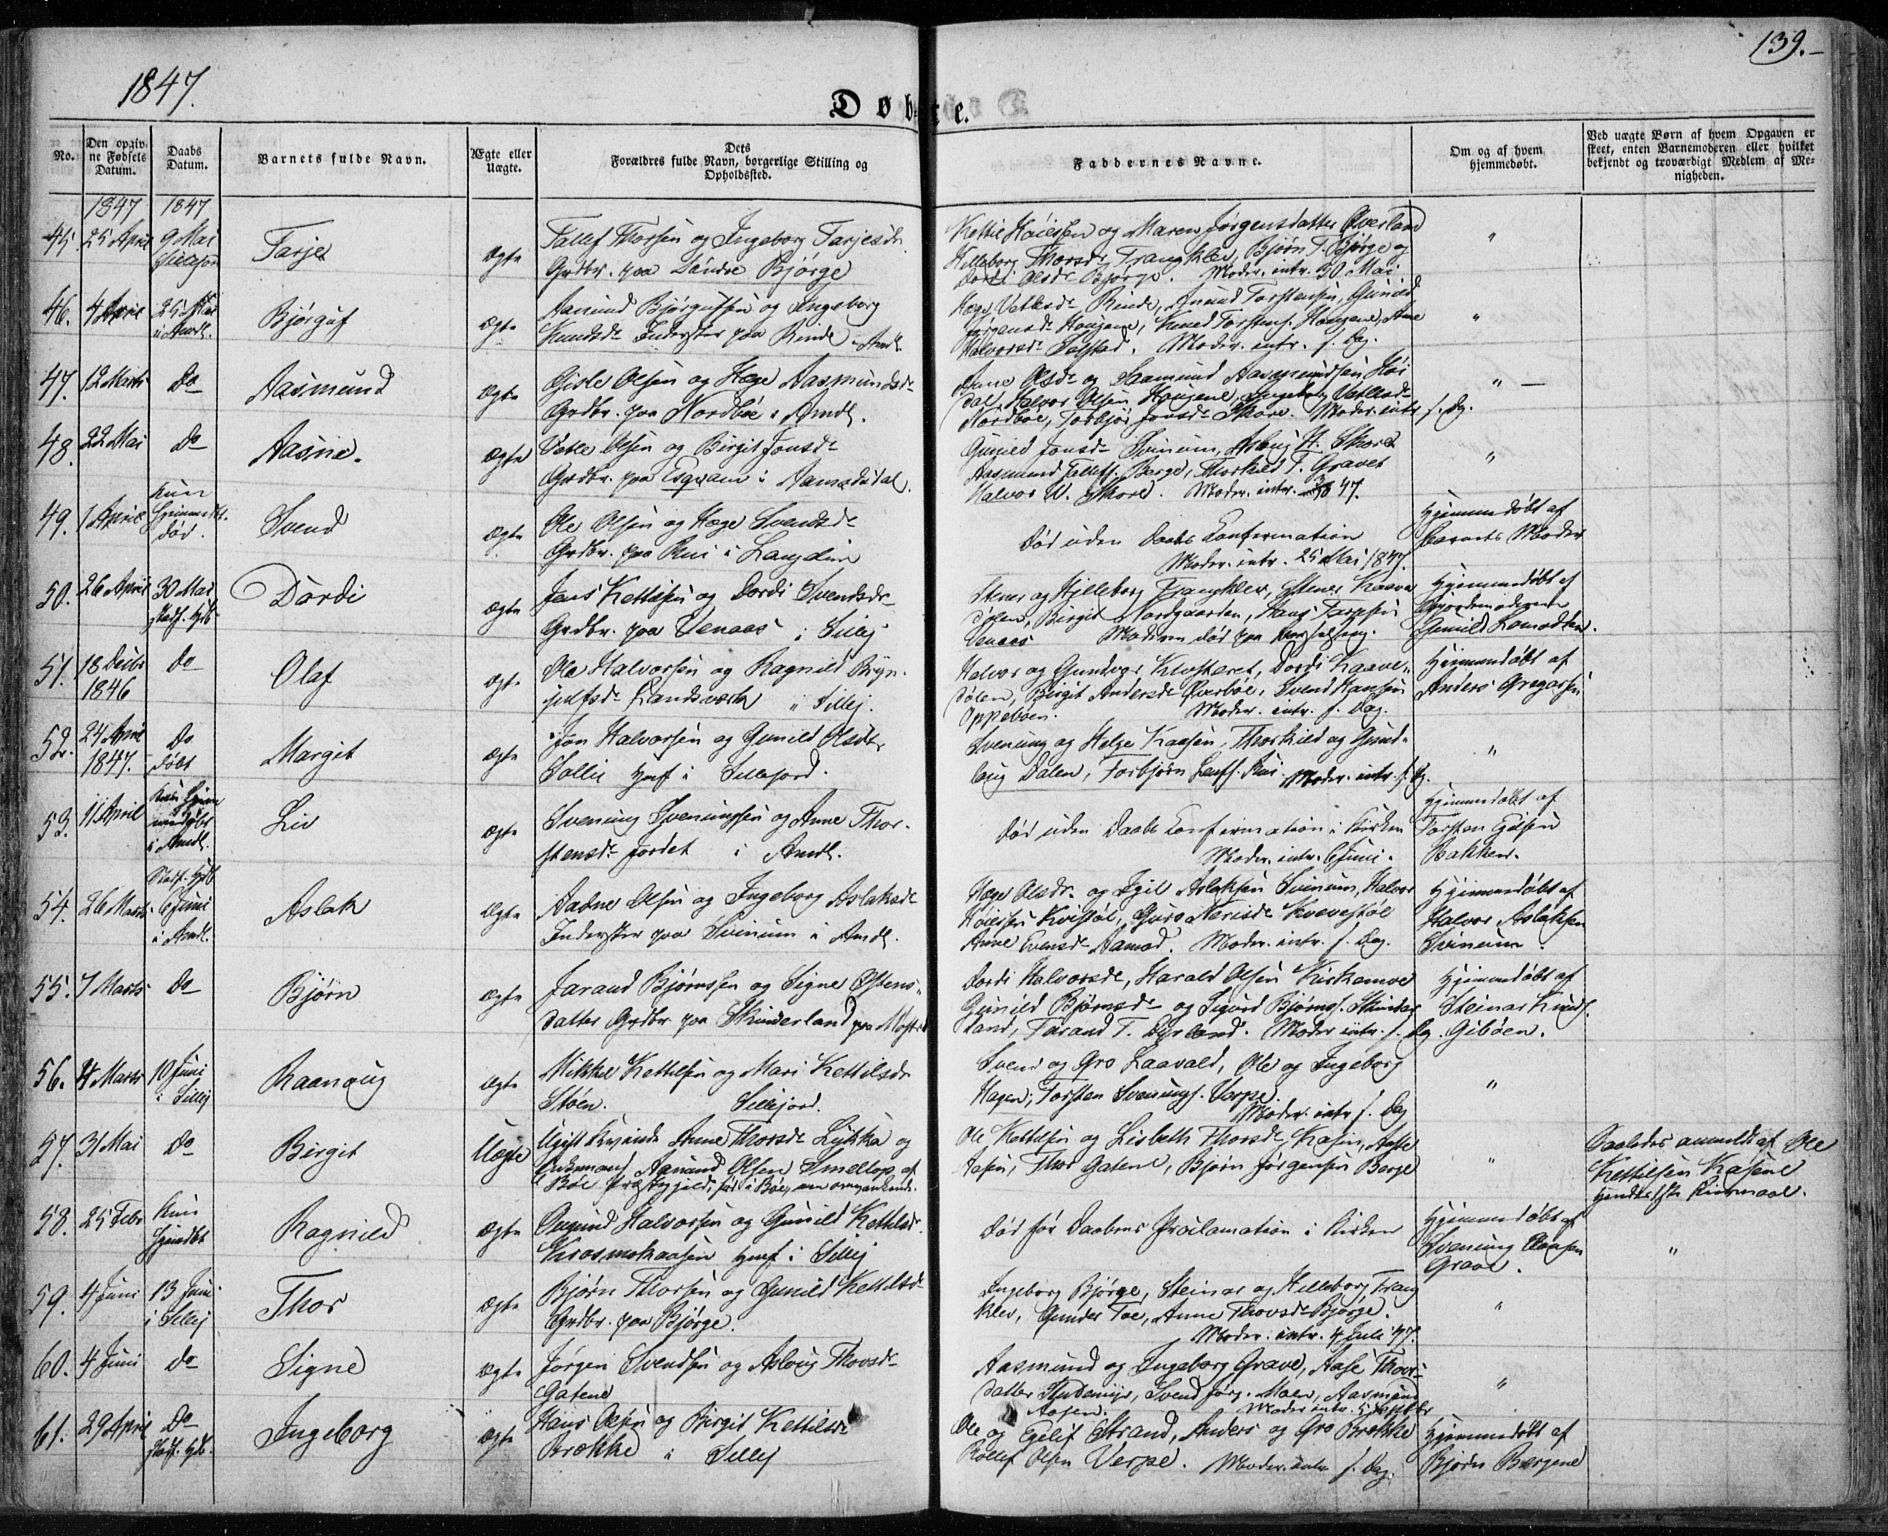 1847.
139.
Døbte.
No.
Den opgivne Fødsels Datum.
Daabs Datum.
Barnets fulde Navn.
Ægte eller Uægte.
Dets Forældres fulde Navn, borgerlige Stilling og Opholdssted.
Faddernes Navne.
Om og af hvem hjemmedøbt.
Ved uægte Børn af hvem Opgaven er skeet, enten Barnemoderen eller hvilket bekjendt og troværdigt Medlem af Menigheden.
1847 1847
45. 25 April 9 Mai Tarje Ægte Tallef Thorsen og Ingeborg Tarjesdr
Grdbr. paa Søndre Bjørge
Kettil Høielsen og Maren Jørgensdatter Øverland
Hilleborg Thorsdr Trangklev, Bjørn T. Bjørge og
Dordi Olsdr Bjørge. Moder. intr. 30 Mai
"
46. 4 April 25 Mai i Amdl. Bjørguf Ægte Aamund Bjørgufsen og Ingeborg
Knudsdr Inderster paa Rinde i Amdl.
Hæge Vetlesdr Rinde, Amund Torstensen, Gunild
Haugene, Knud Torstens. Haugene, Anne
Halvorsdr Solstad. Moder. intr. s. Dag.
"
47. 12 Marts Do Aasmund Ægte Gisle Olsen og Hæge Aasmundsdr
Grdbr. paa Nordbøe i Amdl.
Anne Olsdr og Saamund Aasmundsen Høi
dal, Halvor Olsen Haugene, Ingeborg Vetlesdr
Nordbøe, Torbjør Jonsdr Skore. Moder intr s. Dg.
"
48. 22 Mai Do Aasne. Ægte Vetle Olsen og Birgit Jonsdr
Grdbr. paa i
Gunild Jonsdr Svinum, Aslaug H. Skore
Aasmund Tallefs. Berge, Thorkild T. Graver
Halvor V. Skore. Moder. intr. 47.
"
49. 1 April Kun hjemmedbt. død. Svend Ægte Ole Olsen og Hæge Svendsdr
Grdbr. paa Rui i Langelim
Død uden Daabs Confirmation
Moder. intr. 25 Mai 1847.
Hjemmedøbt af
Barnets Moder
50. 26 April 30 Mai stadf. hjdb Dordi Ægte Jens Kettilsen og Dordi Svendsdr
Grdbr. paa Venaas i Sillej
Stener og Hilleborg Trangklev, Stener Kaave
dølen, Birgit Nordgaarden, Hans Tarjesen
Venaas Moderen død paa Barselseng.
Hjemmedøbt af
Gjordemoderen
Gunild
51. 18 Decbr 1846 Do Olaf Ægte Ole Halvorsen og Ragnild Bryn
julfsdr Landsværk " Sillej.
Halvor og Gundvor Klosteret, Dordi Kaave-
dølen, Birgit Andersdr Øverbøe, Svend Hansen
Oppebøen. Moder. intr. s. Dag.
Hjemmedøbt af
Anders Gregarsen
52. 24 April 1847. Do døbt Margit Ægte Jon Halvorsen og Gunild Olsdr
Sollie Hmf i Sillejord.
Svenung og Helge Kaasen, Thorkild og Gund-
laug Dalen, Torbjørn Leufs. Rui. Moder. intr. s. Dg.
"
53. 11 April Kun hjemmedøbt i Amdl. Liv Ægte Svenung Svenungsen og Anne Thor-
stensdr Jordet i Amdl.
Død uden Daabs Confirmation i Kirken
Moder. intr. 6 Juni.
Hjemmedøbt af
Torsten Egilsen
Bakken.
54. 26 Marts Stadf. hjdb 6 Juni i Amdl. Aslak Ægte Aadne Olsen og Ingeborg Aslaksdr
Inderster paa Svinum i Amdl.
Hæge Olsdr. og Egil Aslaksen Svinum, Halvor
Høielsen Kvistøl, Guro Nerisdr Kvevestøl
Anne Evensdr Aamod. Moder. intr. s. Dag.
Hjemmedøbt af
Halvor Aslaksen
Svinum.
55. 7 Marts Do Bjørn Ægte Jarand Bjørnssen og Signe Østens-
datter Grdbr. paa Skinderland paa Mostad
Dordi Halvorsdr, Harald Olsen Kirkemoe
Gunild Bjørnsdr og Sigurd Bjørns. Skinder
land, Tarand T. Dyrland. Moder intr. s. Dg.
Hjemmedøbt af
Steinar Knuds.
Gibøen.
56. 4 Marts 10 Juni i Sillej Raanaug Ægte Mikkel Kettilsen og Mari Kettilsdr
Stoen. Sillejord.
Svend og Gro Laavald, Ole og Ingeborg
Hagen, Torsten Svenungs. Verpe.
Moder. intr s. Dag
"
57. 31 Mai Do Birgit Uægte Ugift Kvinde Anne Thorsdr Lykka og
Aanund Olsen Smeltop af
Bøe Præstegjeld, født i Bøe, nu omvankende
Ole Kettilsen og Lisbeth Thorsdr Kasen, Aase
Aasen, Thor Gatene, Bjørn Jørgensen Berge
"
Saaledes anmeldt af Ole
Kettilsen Kasene
58. 25 Febr Kun hjemdbt Ragnild Ægte Aamund Halvorsen og Gunild Kettilsdr
Krosmokaasen Hmf i Sillej
Død før Daabens Proclamation i Kirken
Hjemmedøbt af
Svenung Olavsen
Grave.
"
59. 4 Juni 13 Juni i Sillej Thor Ægte Bjørn Thorsen og Gunild Kettilsdr
Grdbr. paa Bjørge.
Ingeborg Bjørge, Steinar og Hilleborg Trang
klev, Gunder Toe, Anne Thovsdr Bjørge.
Moder. intr. 4 Juli 47.
"
60. 4 Juni Do Signe Ægte Jørgen Svendsen og Aslaug Thovsdr
Gatene
Aasmund og Ingeborg Grave, Aase Thovs-
datter, Svend Jørg. Moen, Aasmund
Aasen. Moder intr. 5 Septbr
"
61. 29 April Do stadf. hjdb. Ingeborg Ægte Hans Olsen og Birgit Kettilsdr
Brokke i Sillej
Ole og Egelif Strand, Anders og Gro Brokke
Rollef Olsen Verpe. Moder. intr s. Dag.
Hjemmedøbt af
Bjørn Bergene